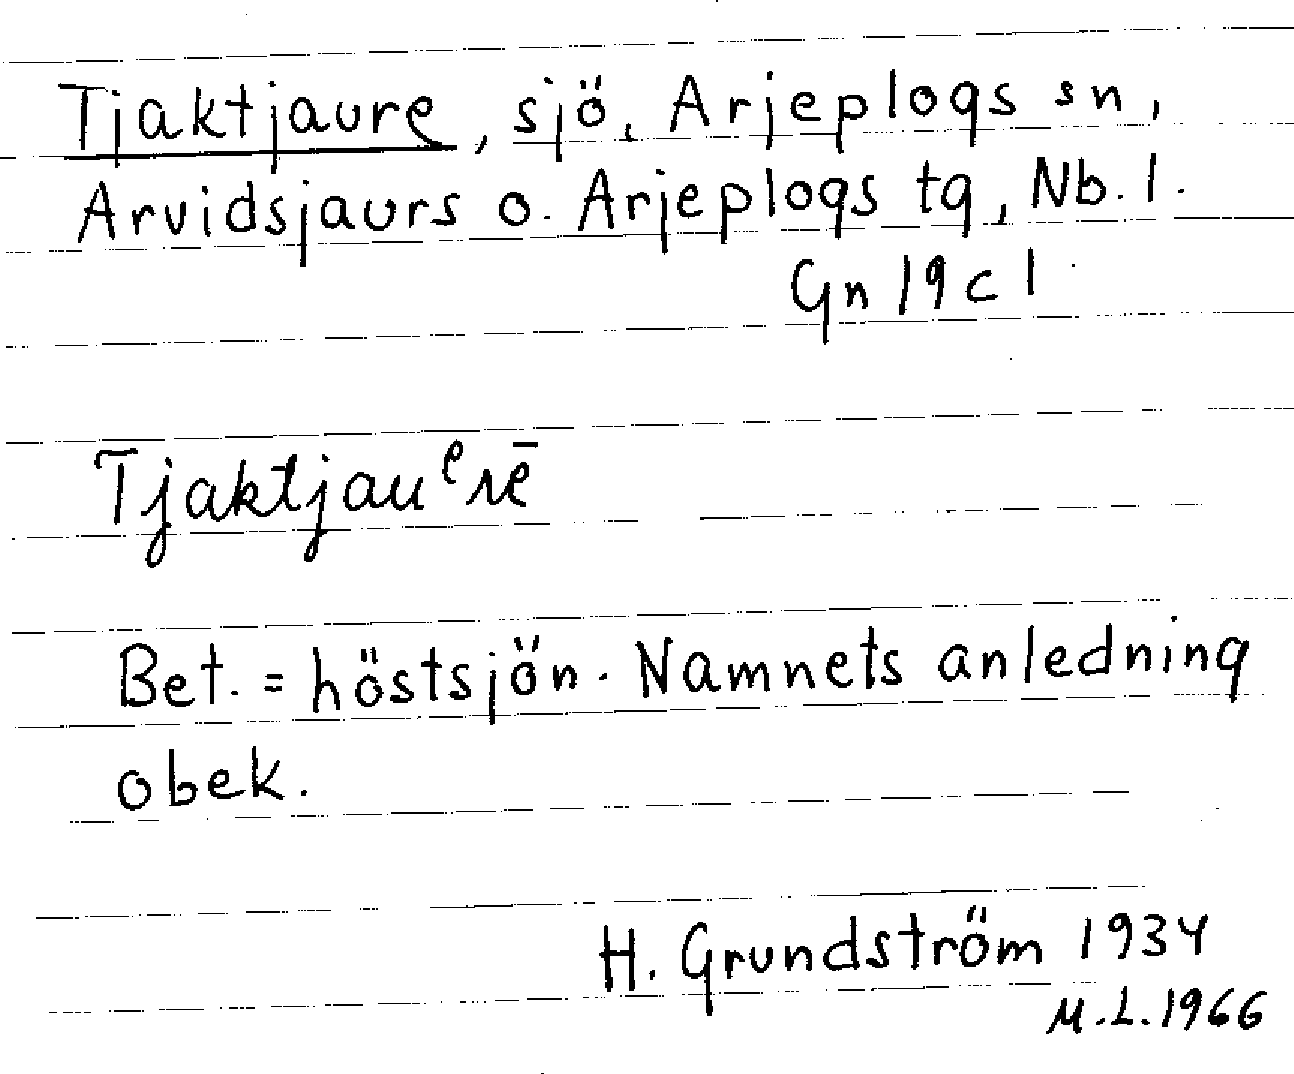 Tjaktjaure, sjö, Arjeplogs sn,
Arvidsjaurs o. Arjeplogs tg, Nb. l.
Gn 19 c 1
Tjaktjauᵉrē
Bet. = höstsjön. Namnets anledning
obek.
H. Grundström 1934
M.L.1966